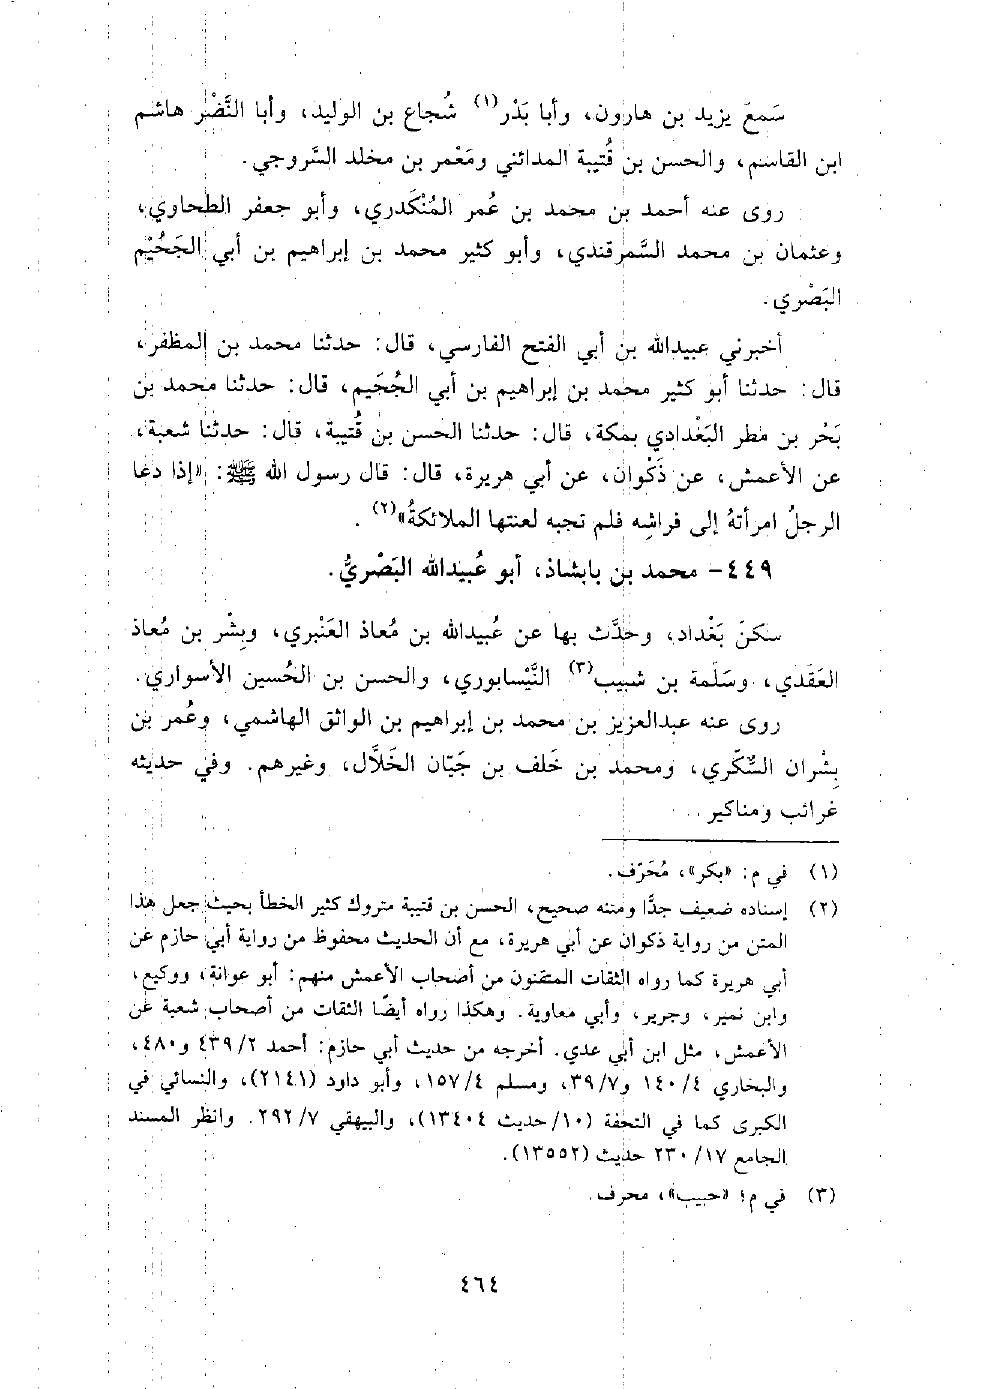 سَمعَ يزيد بن هارون، وأبا بَدْر(١) شُجاع بن الوليد، وأبا النَّضْر هاشم
ابن القاسم، والحسن بن قُتيبة المدائني ومَعْمر بن مخلد السَّروجي.
روى عنه أحمد بن محمد بن عُمر المُنْكَدري، وأبو جعفر الطحاوي،
وعثمان بن محمد السَّمرقندي، وأبو كثير محمد بن إبراهيم بن أبي الجَحُيْم
البَصْري.
أخبرني عبيدالله بن أبي الفتح الفارسي، قال: حدثنا محمد بن المظفر،
قال: حدثنا أبو كثير محمد بن إبراهيم بن أبي الجُحَيم، قال: حدثنا محمد بن
بَحْر بن مطر البَغْدادي بمكة، قال: حدثنا الحسن بن قُتيبة، قال: حدثنا شعبة،
عن الأعمش، عن ذَكْوان، عن أبي هريرة، قال: قال رسول الله ﷺ: «إذا دعا
الرجلُ امرأتهُ إلى فراشِه فلم تجبه لعنتها الملائكةُ»(٢).
٤٤٩- محمد بن بابشاذ، أبو عُبيدالله البَصْريُّ.
سكنَ بَغْداد، وحدَّث بها عن عُبيدالله بن مُعاذ العَنْبري، وبِشْر بن مُعاذ
العَقَدي، وسَلَمة بن شَبيب(٣) النَّيْسابوري، والحسن بن الحُسين الأسواري.
روى عنه عبدالعزيز بن محمد بن إبراهيم بن الواثق الهاشمي، وعُمر بن
بِشْران السُّكَّري، ومحمد بن خَلَف بن جَيّان الخَلَّال، وغيرهم. وفي حديثه
غرائب ومناكير.
(١) في م: «بكر»، مُحَرّف.
(٢) إسناده ضعيف جدًا ومتنه صحيح، الحسن بن قتيبة متروك كثير الخطأ بحيث جعل هذا
المتن من رواية ذكوان عن أبي هريرة، مع أن الحديث محفوظ من رواية أبي حازم عن
أبي هريرة كما رواه الثقات المتقنون من أصحاب الأعمش منهم: أبو عوانة، ووكيع،
وابن نمير، وجرير، وأبي معاوية. وهكذا رواه أيضًا الثقات من أصحاب شعبة عن
الأعمش، مثل ابن أبي عدي. أخرجه من حديث أبي حازم: أحمد ٢/ ٤٣٩ و٤٨٠،
والبخاري ٤/ ١٤٠ و٧/ ٣٩، ومسلم ٤/ ١٥٧، وأبو داود (٢١٤١)، والنسائي في
الكبرى كما في التحفة (١٠/ حديث ١٣٤٠٤)، والبيهقي ٧/ ٢٩٢. وانظر المسند
الجامع ١٧/ ٢٣٠ حديث (١٣٥٥٢).
(٣) في م: «حبيب»، محرف.
٤٦٤